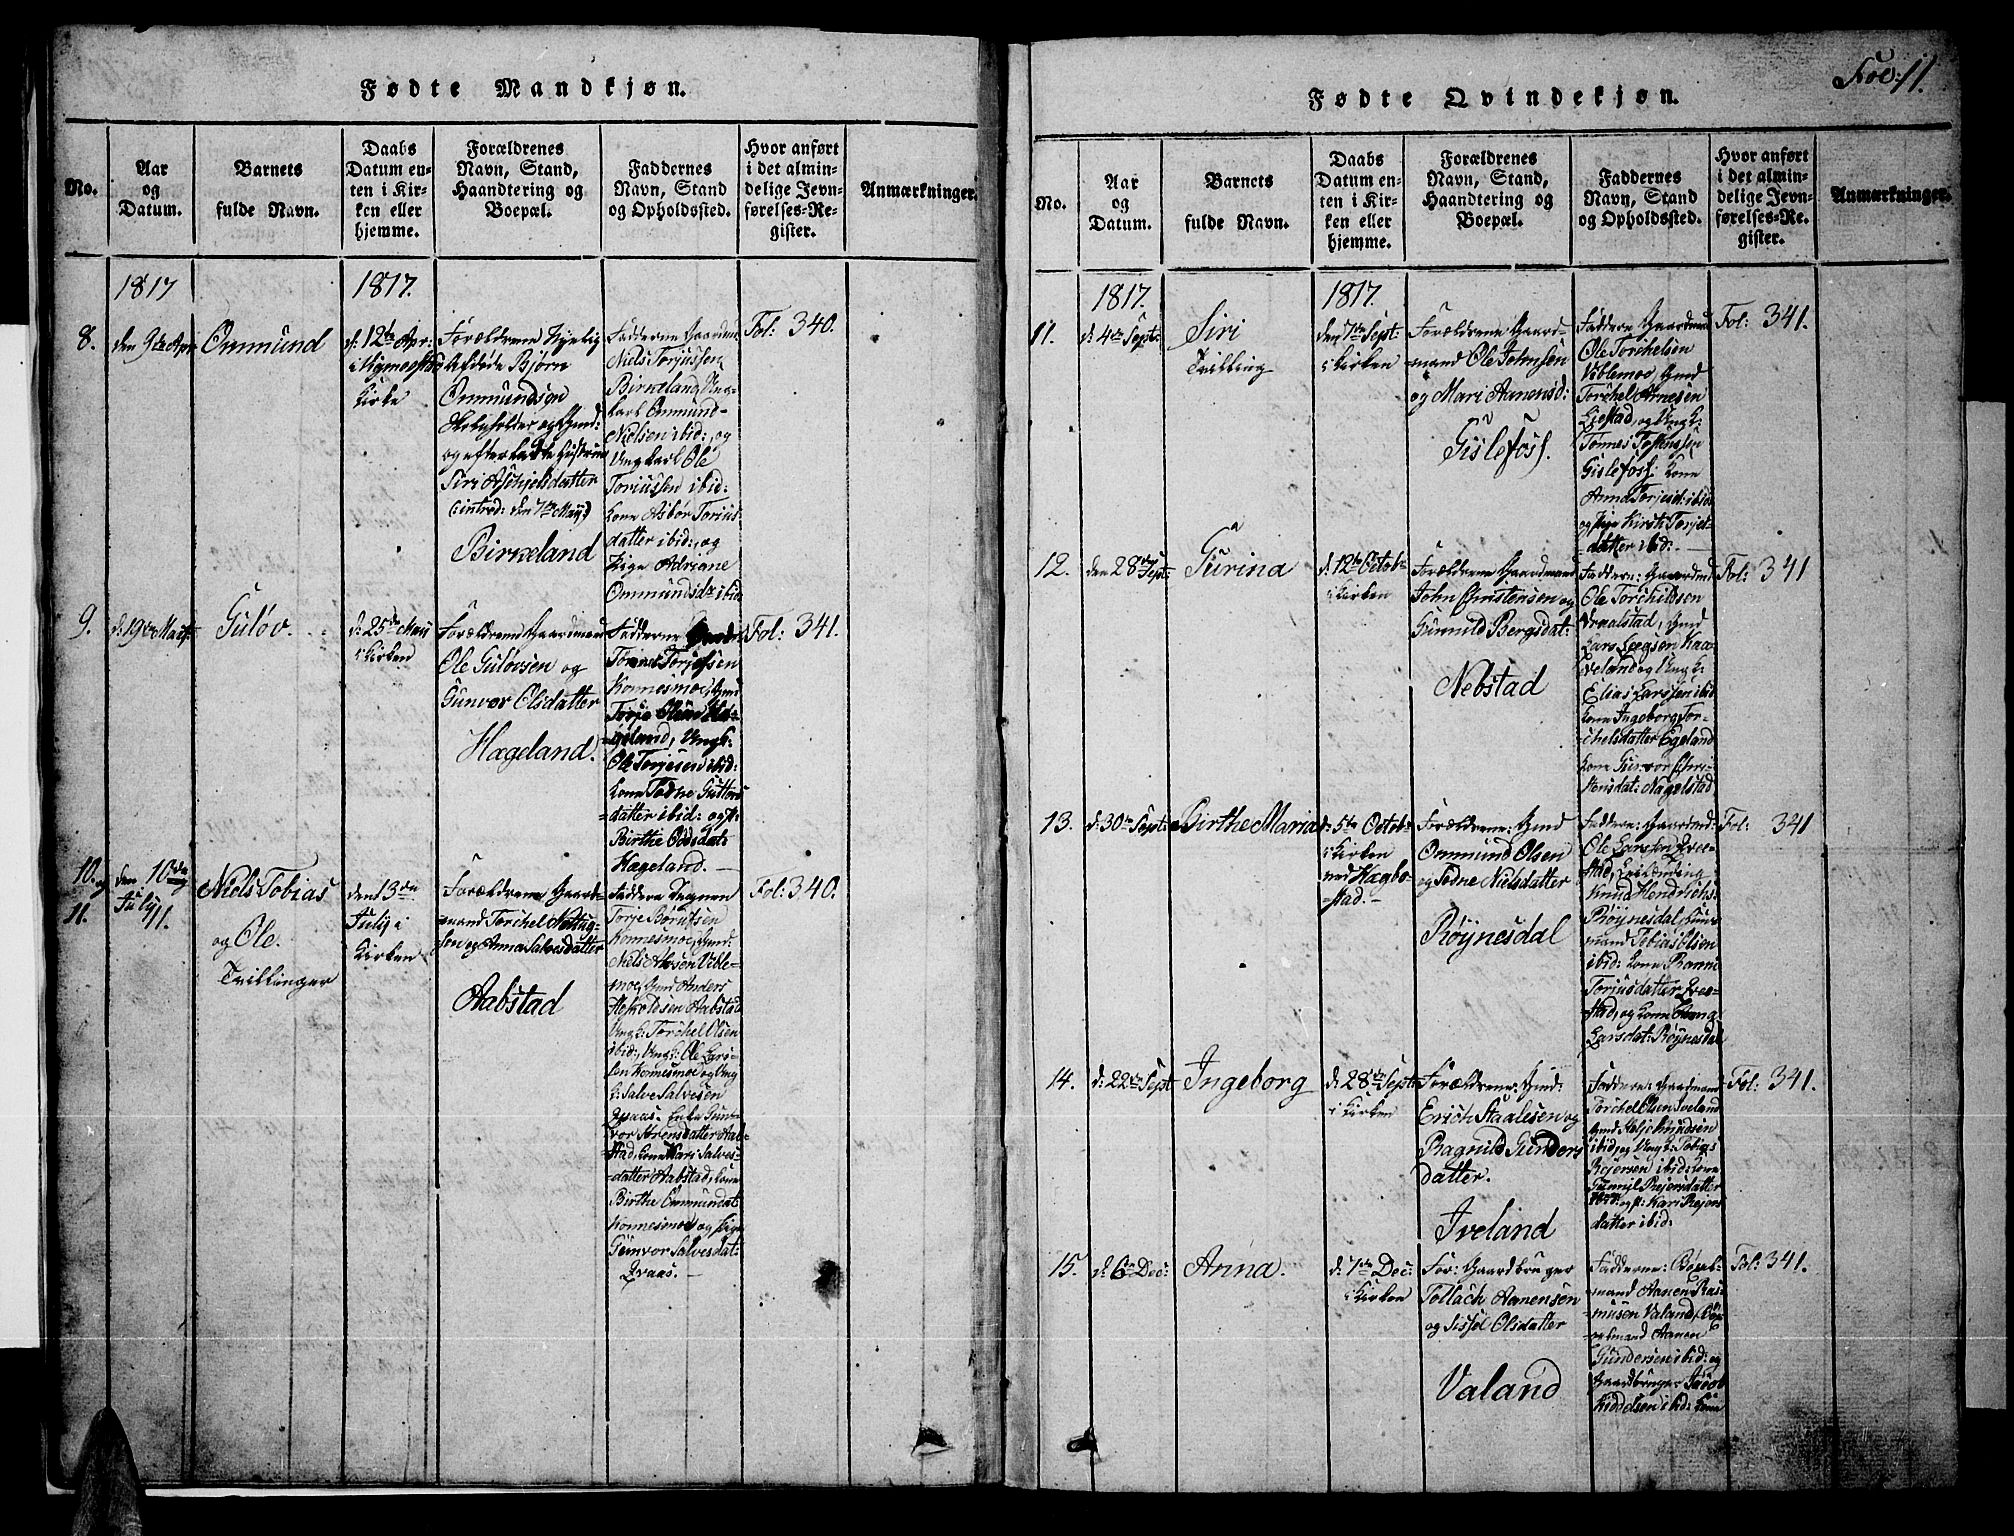 Fødte Mandkjøn.
No.
Aar
og
Datum.
Barnets
fulde Navn.
Daabs
Datum en-
ten i Kir-
ken eller
hjemme.
Forældrenes
Navn, Stand,
Haandtering og
Boepæl.
Faddernes
Navn, Stand
og Opholdssted.
Hvor anført
i det almin-
delige Jevn-
førelses-Re-
gister.
Anmærkninger.
1817
1817.
8.
den 9de Apr
Ommund
d: 12te Apr:
Kirke
Forældrene Nyelig
Afdøde Bjørn
Ommundsen
Siri Aschjelsdatter
(:introd: den 7de Maij:)
Birkeland
Fadderne Gaardm:
Niels Torjussen
Birkeland, Ung-
karl Ommund
Nielsen ibid:, og
Ungkarl Ole
Torjussen ibid:
Kone Asbor Torius-
datter ibid:, og
Pige Adriane
Ommundsd: ibid
Fol: 340.
9.
d: 19de Maij
Guløv.
d: 25de Maij
i Kirken
Forældrene Gaardmand
Ole Guløvsen og
Gunvor Olsdatter
Hageland.
Fadderne
Torjussen
Konnesmoe, Gmd
Torje Olsen Ha-
geland, Ungk:
Ole Torjesen ibid:
Kone Todne Guttorms-
datter ibid: og P:
Birthe Oddsdat:
Hageland.
Fol: 341.
10. og
11.
den 10de og
11. July
Niels Tobias
og Ole.
Tvillinger
den 13de
Julij i
Kirken
Forældrene Gaard-
mand Torchel Nottug-
sen og Anna Salvesdatter
Aabstad
Faddere
Torje Borutsen
Konnesmoe, Gmd:
Niels Aasen Vible-
moe, Gmd Anders
Aabstad
Ungk: Torchel Olsen
ibid:, Ungk: Ole Lars-
sen Konnesmoe og Ung
k: Salve Salvesen
Qvaas. Enke Gun-
vor Arensdatter Aab-
stad, Kone Mari Salves-
datter Aabstad, Kone
Birthe Ommundsdat:
Konnesmoe og Pige
Gunvor Salvesdat:
Qvaas.
Fol: 340.
Fol: 11.
Fødte Qvindekjøn.
No.
Aar
og
Datum.
Barnets
fulde Navn.
Daabs
Datum en-
ten i Kir-
ken eller
hjemme.
Forældrenes
Navn, Stand,
Haandtering og
Boepæl.
Faddernes
Navn, Stand
og Opholdssted.
Hvor anført
i det almin-
delige Jevn-
førelses-Re-
gister.
Anmærkninger.
1817.
1817.
11.
d: 4de Sept:
Siri
Tvilling
den 7de Sept:
i Kirken
Forældrene Gaard-
mand Ole Johnsen
og Mari Aanensd:
Gislefoss.
Faddere Gaardmd
Ole Torchelsen
Viblemoe, Gmd
Torchel Arnesen
Liestad, og Ungk:
Tønnes
Gislefoss: Kone
Anna Torjusd: ibid
og Pige Kirsti Torjus-
datter ibid:
Fol: 341.
12.
den 28de Sept:
Gurina
d: 12te Octob
i Kirken
Forældrene Gaardmand
John Christensen og
Gunnild Bergsdat:
Nebstad
Faddere: Gaardmd
Ole Torchildsen
Vraalstad, Gmd
Lars Seegsen Kaa-
veland og Ungk:
Elias Larssen ibid
Kone Ingeborg Tor-
chelsdatter Egeland
Kone Gunvor Chri-
stensdat: Nagelstad
Fol: 341
13.
d: 30te Sept:
Birthe Maria
d: 5te Octob:
i Kirken
ved Hægbo-
stad.
Forældrene: Gmd
Ommund Olsen
og Todne Nielsdatter
Røynesdal
Faddere: Gaardmd:
Ole Larssen
Knud Hendrichs
Røynesdal,
mand Tobias Olsen
ibid: Kone Ranni
Torjusdatter
stad, og Kone
Larsdat: Røynesdal
Fol: 341
14.
d: 22de Sept
Ingeborg
d: 28de Sept:
i Kirken
Forældrene: Gmd:
Erich Staalesen og
Ragnild Gunders
datter.
Iveland
Faddere: Gaardmand
Torchel Olsen Iveland
Gmd Kolje Knudsen
ibid, og Ungk: Tobias
Rejersen ibid: Kone
Gunnil Rejersdatter
ibid: og P: Kari Rejers
datter ibid:
Fol: 341.
15.
d: 6te Dec:
Anna.
d: 7de Dec:
i Kirken
For: Gaardbruger
Tollach Aanensen
og Sissel Olsdatter
Valand
Fadderne:
mand Aanen Ras-
musen Valand,
mand Aanen
Gundersen ibid: og
Gaardbruger Jacob
Kiddelsen ibid: Kone
Fol: 341.